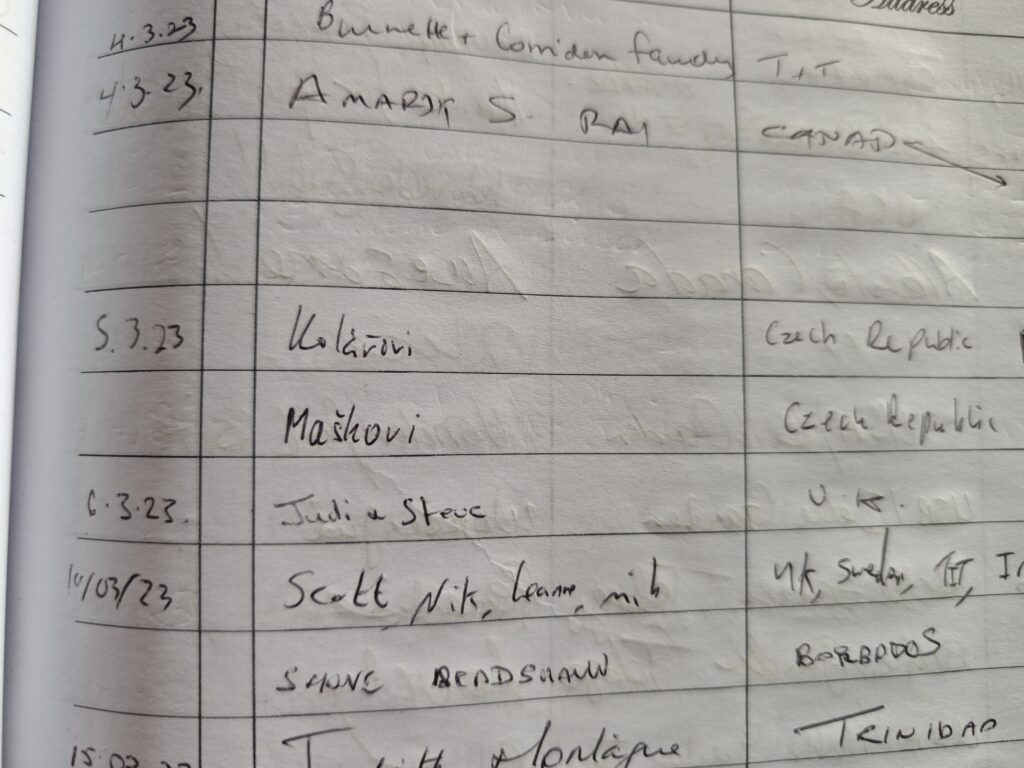 Address
4.3.23 Brunette + Family T&T
4.3.23. S. RAI CANADA
5.3.23 Kolářovi Czech Republic
Maškovi Czech Republic
6.3.23. Judi & Steve U.K.
10/03/23 Scott, Nik, Leanne, UK, Sweden, TT,
SHANE BRADSHAW BARBADOS
Montague TRINIDAD